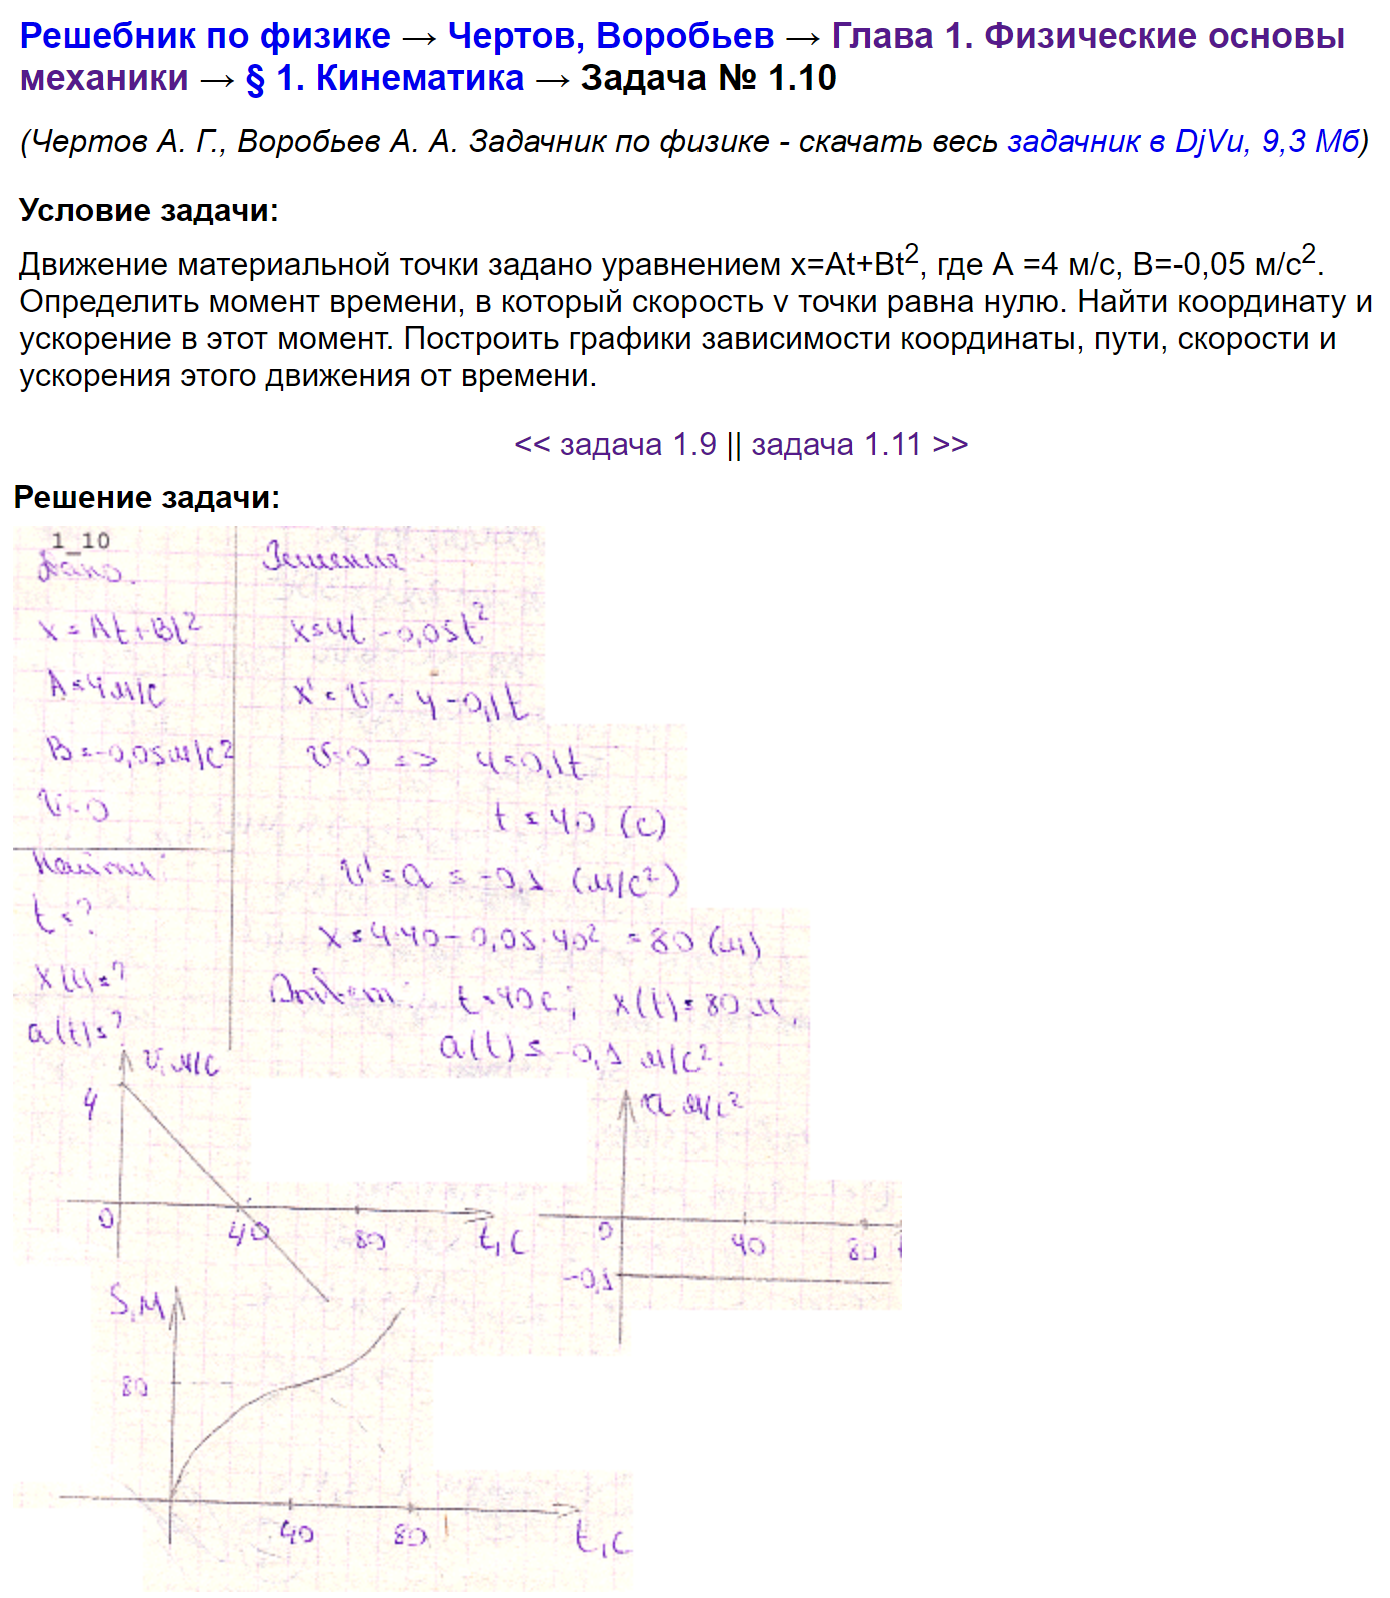 Решебник по физике → Чертов, Воробьев → Глава 1. Физические основы
механики → § 1. Кинематика → Задача № 1.10
(Чертов А. Г., Воробьев А. А. Задачник по физике - скачать весь задачник в DjVu, 9,3 Мб)
Условие задачи:
Движение материальной точки задано уравнением x=At+Bt², где A =4 м/с, B=-0,05 м/с².
Определить момент времени, в который скорость v точки равна нулю. Найти координату и
ускорение в этот момент. Построить графики зависимости координаты, пути, скорости и
ускорения этого движения от времени.
<< задача 1.9 || задача 1.11 >>
Решение задачи:
1_10
Дано.
x = At+Bt²
A=4м/с
B=-0,05м/с²
v=0
Найти:
t=?
x(t)=?
a(t)=?
Решение
x=4t-0,05t²
x'=v=4-0,1t
v=0 => 4=0,1t
t=40 (с)
v'=a=-0,1 (м/с²)
x=4·40-0,05·40²=80(м)
Ответ: t=40с; x(t)=80м,
a(t)=-0,1 м/с².
v,м/с
4
0
40
80
t,с
a м/с²
0
40
80
-0,1
S,м
80
40
80
t,с